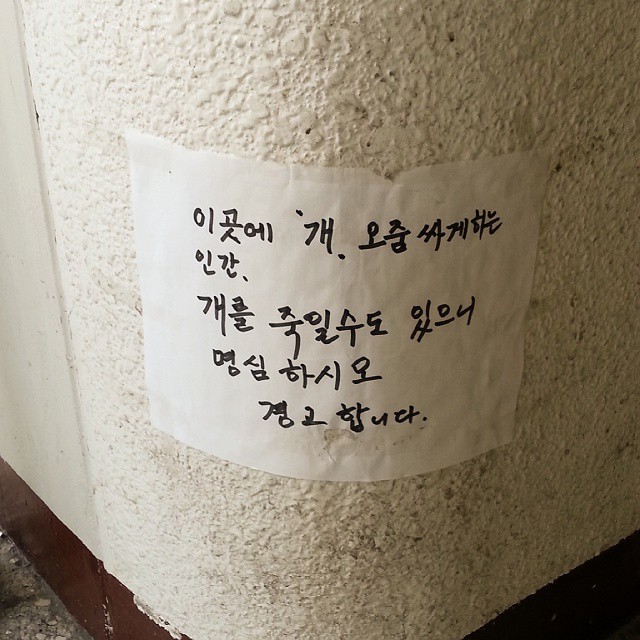 이곳에 '개. 오줌 싸게하는
인간.
개를 죽일수도 있으니
명심 하시오
경고 합니다.